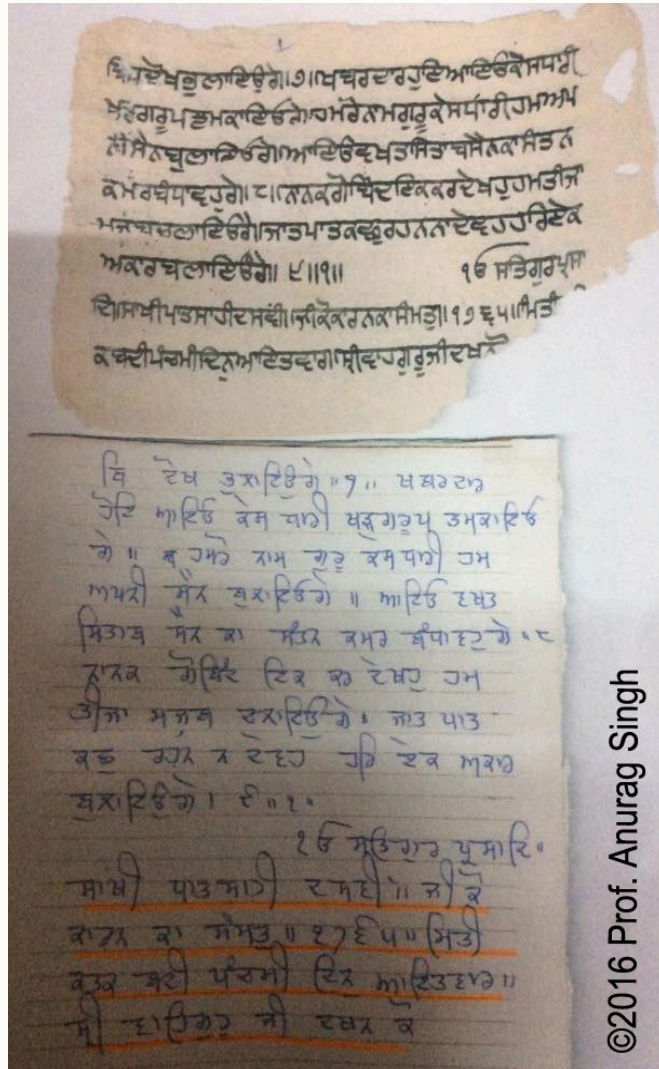 ਦੇਖ ਭੁਲਾਇਉਗੇ॥੭॥ਖਬਰਦਾਰਹੁਇਆਇਓਕੇਸਧਾਰੀ
ਖੜਗਰੂਪਣਮਕਾਇਓਗੇ॥ਹਮਰੋਨਾਮਗੁਰੂਕੇਸਧਾਰੀਹਮਅਪ
ਨੀਸੈਨਬੁਲਾਇਓਗੇ॥ਆਇਓਵਖਤਸਿਤਾਬਸੈਨਕਾਸੰਤਨ
ਕਮਰਬੰਧਾਵਹੁਗੇ॥੮॥ਨਾਨਕਗੋਬਿੰਦਇਕਕਰਦੇਖਹੁਹਮਤੀਜਾ
ਮਜਬਚਲਾਇਓਗੇ॥ਜਾਤਪਾਤਕਛੁਰਹਨਨਾਦੇਵਹਹਰਿਏਕ
ਅਕਾਰਬਲਾਇਓਗੇ॥ ੯॥੧॥ ੴ ਸਤਿਗੁਰਪ੍ਰਸਾ
ਦਿ॥ਸਾਖੀਪਾਤਸਾਹੀਦਸਵੀ॥ਜੀਕੋਕਾਰਨਕਾਸੰਮਤੁ॥੧੭੬੫॥ਮਿਤੀ
ਕਬਦੀਪੰਚਮੀਦਿਨੁਆਇਤਵਾਰ॥ਸ੍ਰੀਵਾਹਗੁਰੂਜੀਦਖਨ
ਬਿ ਦੇਖ ਭੁਲਾਇਉਗੇ॥੭॥ ਖਬਰਦਾਰ
ਹੋਇ ਆਇਓ ਕੇਸ ਧਾਰੀ ਖੜਗਰੂਪ ਤਮਕਾਇਓ
ਗੇ॥ ਹਮਰੋ ਨਾਮ ਗੁਰੂ ਕੇਸਧਾਰੀ ਹਮ
ਅਪਨੀ ਸੈਨ ਬੁਲਾਇਓਗੇ॥ ਆਇਓ ਵਖਤ
ਸਿਤਾਬ ਸੈਨ ਕਾ ਸੰਤਨ ਕਮਰ ਬੰਧਾਵਹੁਗੇ॥੮
ਨਾਨਕ ਗੋਬਿੰਦ ਇਕ ਕਰ ਦੇਖਹੁ ਹਮ
ਤੀਜਾ ਮਜਬ ਚਲਾਇਉਗੇ। ਜਾਤ ਪਾਤ
ਕਛੁ ਰਹਨ ਨ ਦੇਵਹ ਹਰਿ ਏਕ ਅਕਾਰ
ਬੁਲਾਇਉਗੇ। ੯॥੧॥
ੴ ਸਤਿਗੁਰ ਪ੍ਰਸਾਦਿ॥
ਸਾਖੀ ਪਾਤਸਾਹੀ ਦਸਵੀ॥ ਜੀ ਕੋ
ਕਾਰਨ ਕਾ ਸੰਮਤੁ॥੧੭੬੫॥ ਮਿਤੀ
ਕਤਕ ਬਦੀ ਪੰਚਮੀ ਦਿਨੁ ਆਇਤਵਾਰ॥
ਸ੍ਰੀ ਵਾਹਿਗੁਰੂ ਜੀ ਦਖਨ ਕੋ
©2016 Prof. Anurag Singh